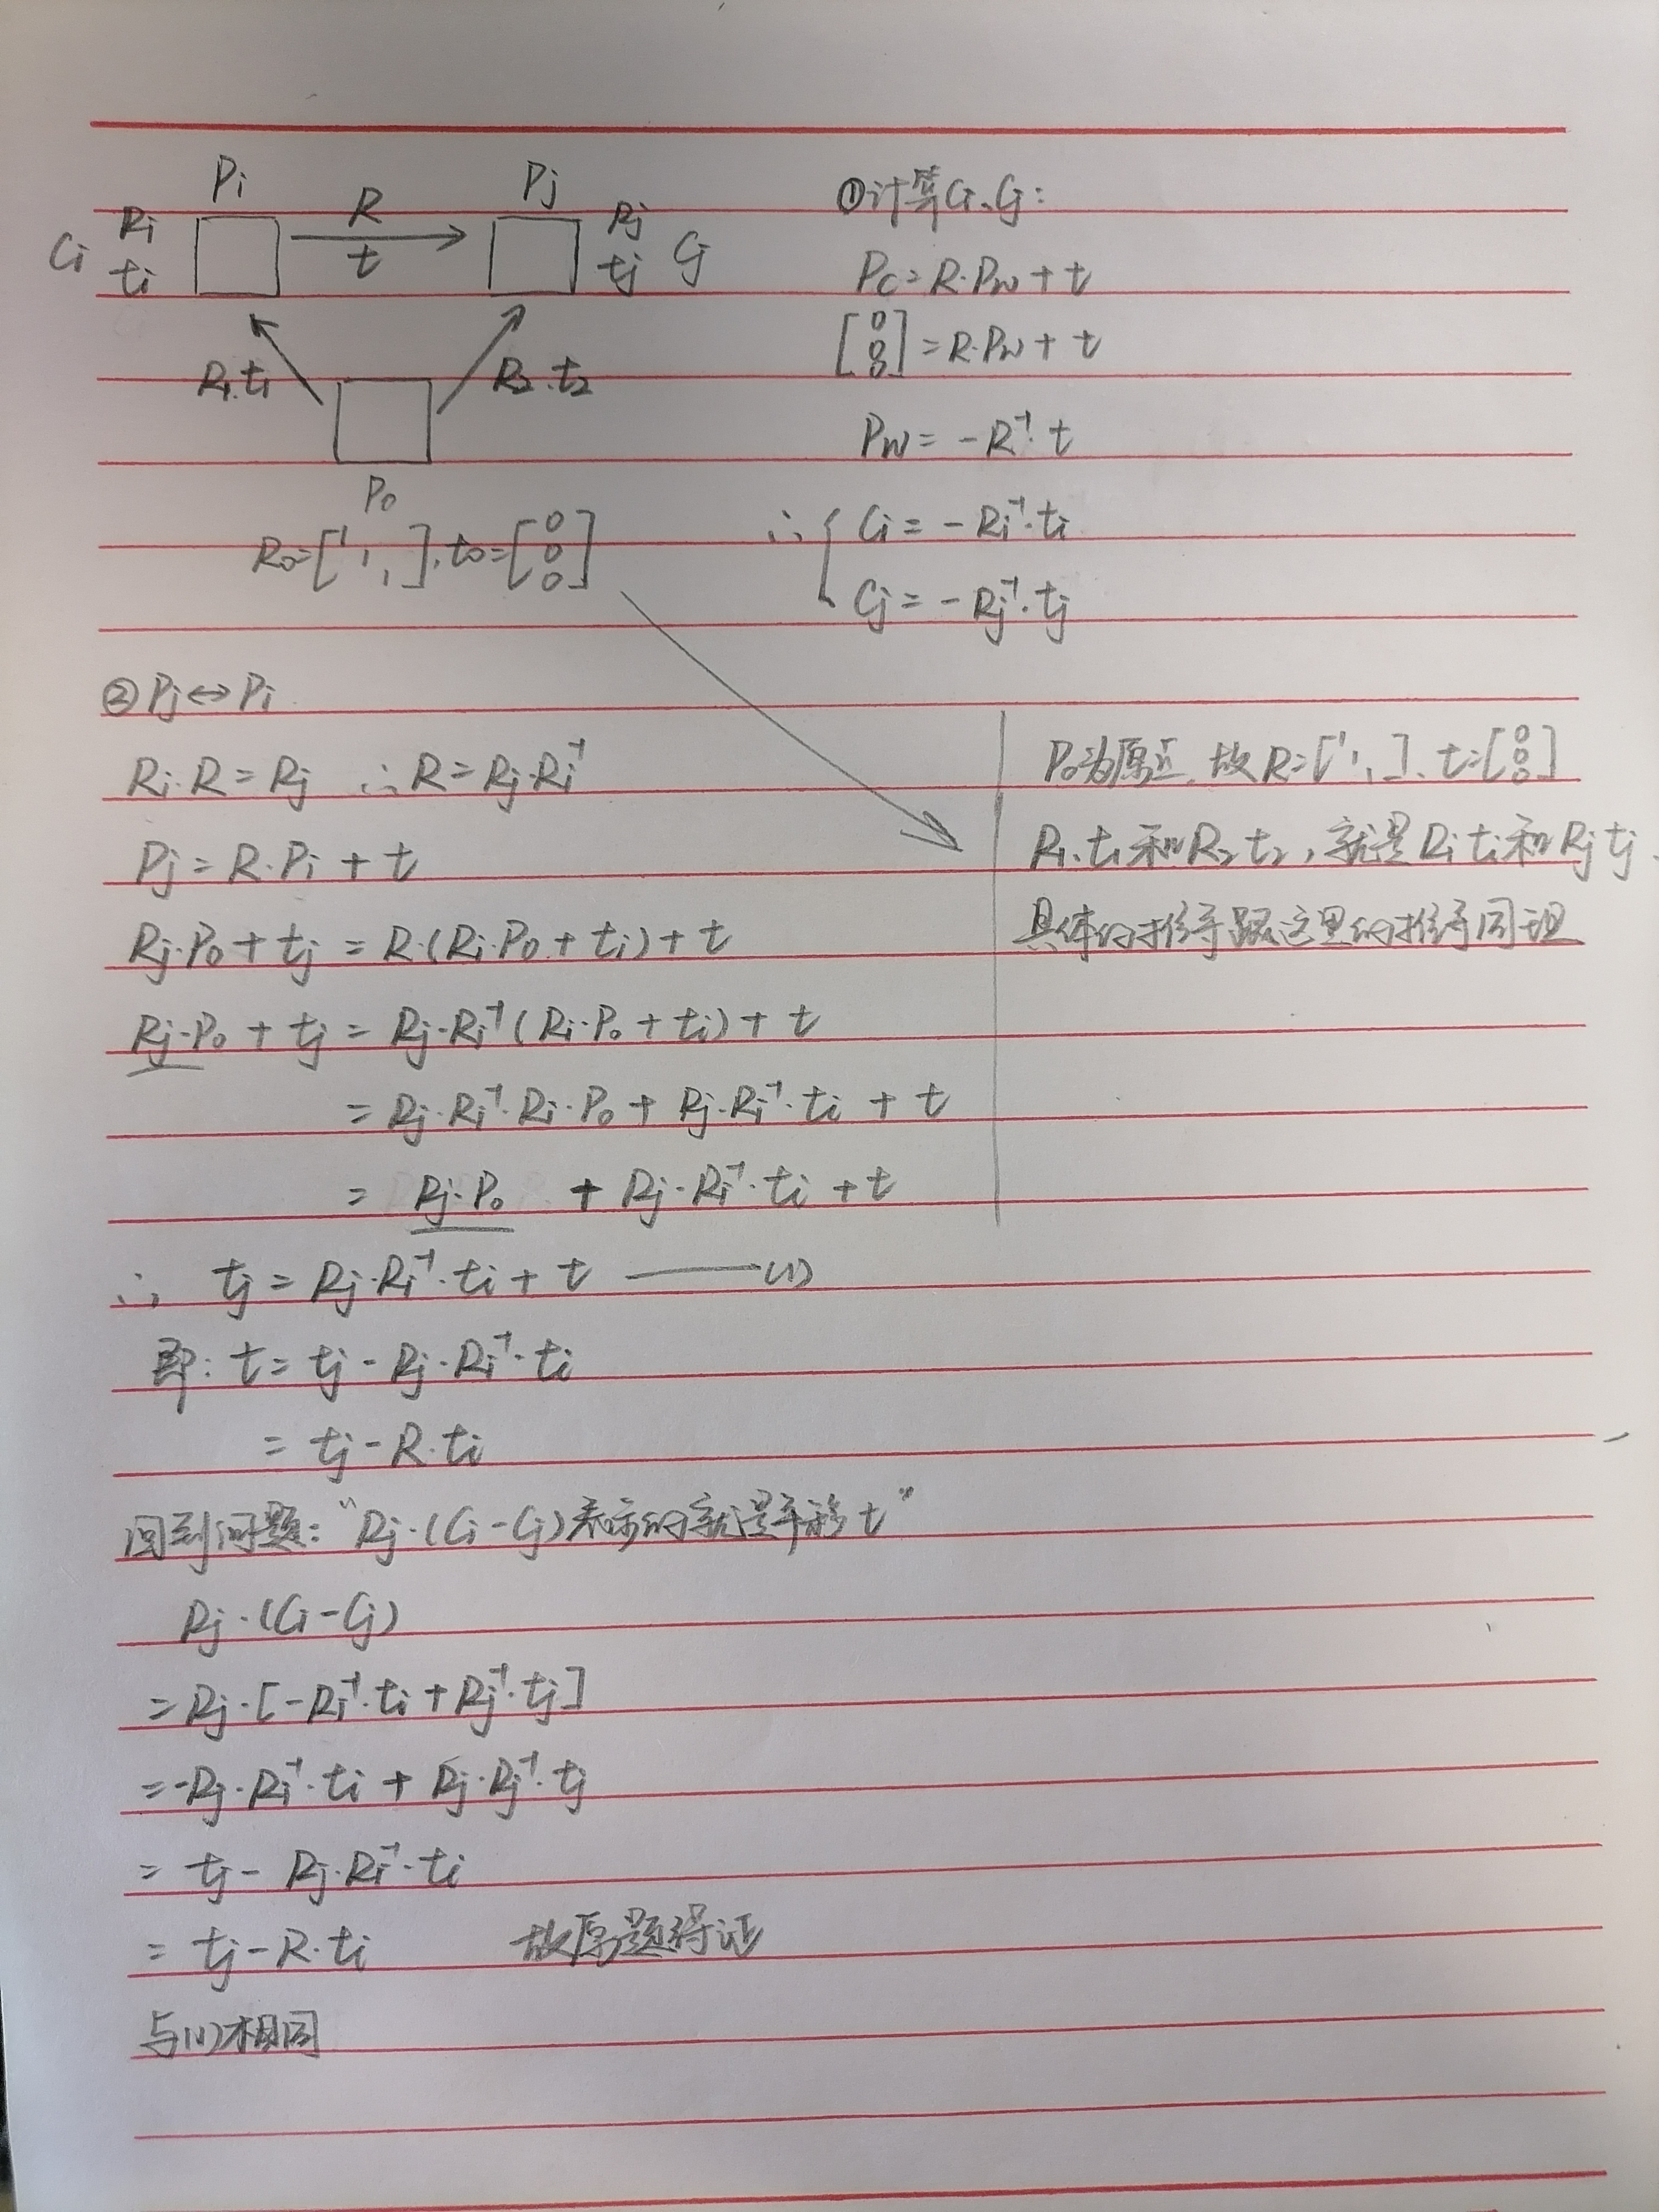 Pi
Pj
Ri
R
Rj
Ci
ti
t
tj
Cj
R1.t1
R2.t2
P0
R0=[1 1 1], t0=[0 0 0]
①计算Ci、Cj:
Pc=R·Pw+t
[0 0 0]=R·Pw+t
Pw=-R⁻¹·t
∴{Ci=-Ri⁻¹·ti
Cj=-Rj⁻¹·tj
②Pj↔Pi
Ri·R=Rj ∴R=Rj·Ri⁻¹
Pj=R·Pi+t
Rj·P0+tj=R·(Ri·P0+ti)+t
Rj·P0+tj=Rj·Ri⁻¹(Ri·P0+ti)+t
=Rj·Ri⁻¹·Ri·P0+Rj·Ri⁻¹·ti+t
=Rj·P0+Rj·Ri⁻¹·ti+t
∴ tj=Rj·Ri⁻¹·ti+t ——(1)
即: t=tj-Rj·Ri⁻¹·ti
=tj-R·ti
P0为原点,故R=[1 1 1]、t=[0 0 0]
R1.t1和R2 t2,就是Ri ti和Rj tj.
具体的推导跟这里的推导同理
回到问题:"Rj·(Ci-Cj)表示的就是平移t"
Rj·(Ci-Cj)
=Rj·[-Ri⁻¹·ti+Rj⁻¹·tj]
=-Rj·Ri⁻¹·ti+Rj·Rj⁻¹·tj
=tj-Rj·Ri⁻¹·ti
=tj-R·ti 故原题得证
与(1)相同